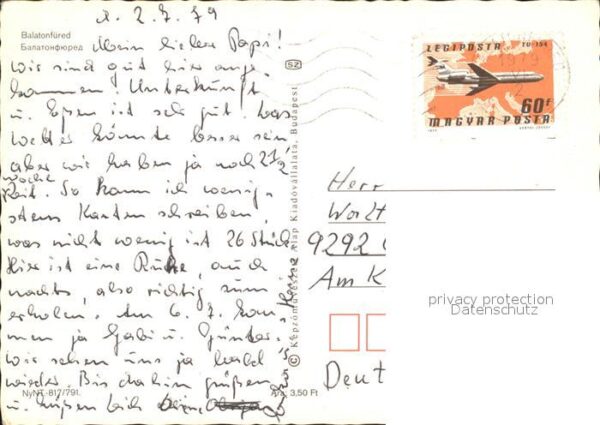 d. 2.7.79
Balatonfüred
Балатонфюред
Mein lieber Papi!
Wir sind gut hier ange-
kommen. Unterkunft
u. Essen ist sehr gut. Das
Wetter könnte besser sein
aber wir haben ja noch 2 1/2
Woche
Zeit. So kann ich wenig-
stens Karten schreiben,
was nicht wenig ist 26 Stück
Hier ist eine Ruhe, auch
nachts, also richtig zum
erholen. Am 6.7. kom-
men ja Gabi u. Günter.
Wir sehen uns ja bald
wieder. Bis dahin grüßen
u. küssen Dich
NyNT-817/791.
SZ
© Képzőművészeti Alap Kiadóvállalata, Budapest
Ára: 3,50 Ft
LÉGIPOSTA TU-154
60f
MAGYAR POSTA
1979
Herr
9292
Am K
Deut
privacy protection
Datenschutz